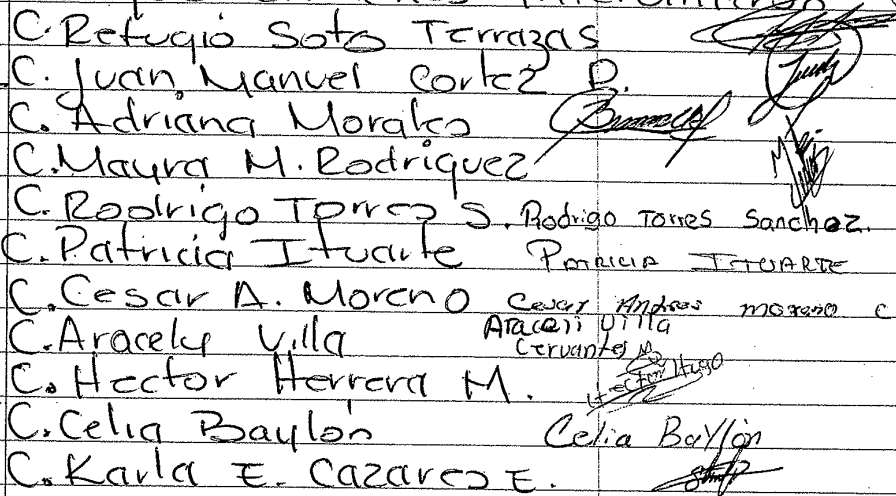 C. Refugio Soto Terrazas
C. Juan Manuel Cortez D.
C. Adriana Morales
C. Mayra M. Rodriguez
C. Rodrigo Torres S. Rodrigo Torres Sanchez.
C. Patricia Ituarte Patricia ITUARTE
C. Cesar A. Moreno Cesar Andres moreno C
C. Aracely Villa Araceli Villa
Cervantes M.
C. Hector Herrera M. Hector Hugo
C. Celia Baylón Celia Bayllón
C. Karla E. Cazares E.